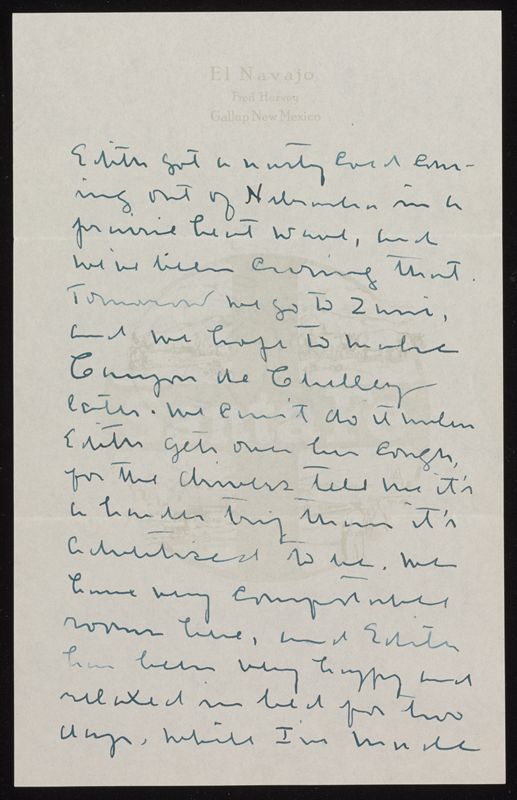 El Navajo
Fred Harvey
Gallup New Mexico
Edith got a nasty cold com-
ing out of Nebraska in a
prairie heat wave, and
we've been curing that.
Tomorrow we go to Zuni,
and we hope to make
Canyon de Chelley
later. We can't do it unless
Edith gets over her cough,
for the drivers tell me it's
a harder trip than it's
advertised to be. We
have very comfortable
rooms here, and Edith
has been very happy and
relaxed in bed for two
days, while I've made